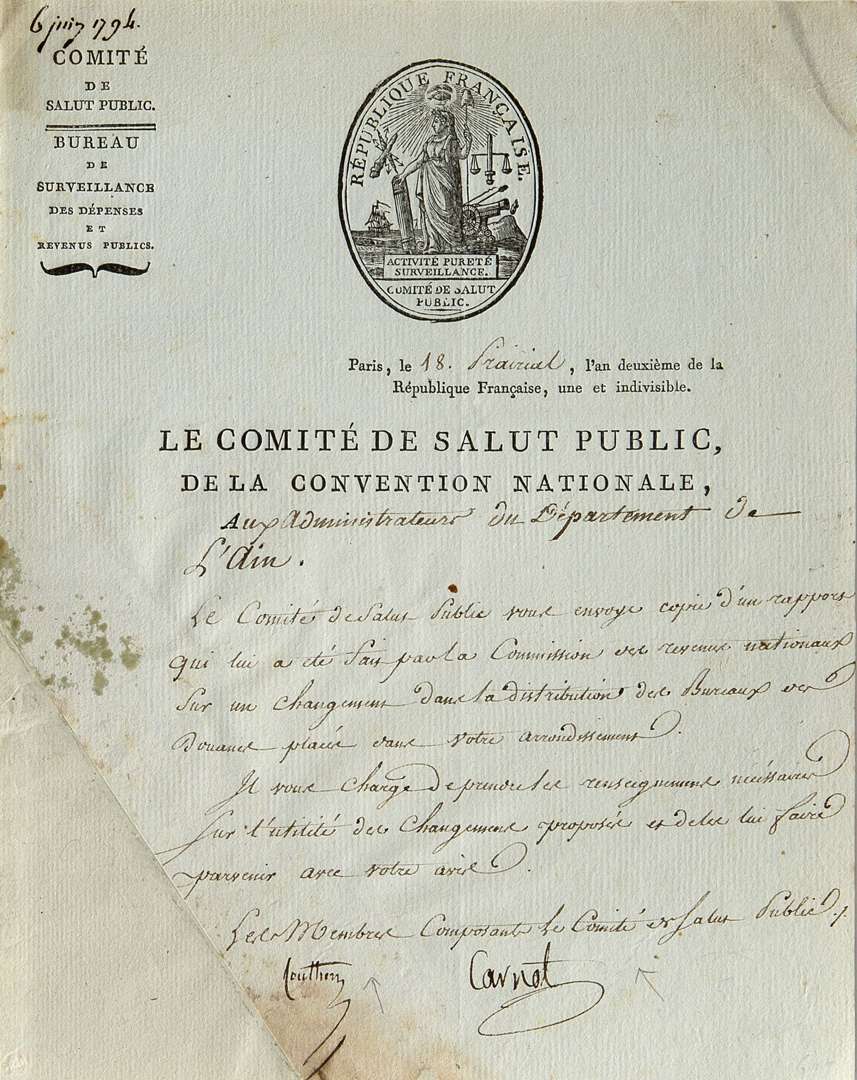 6 juin 1794.
COMITÉ
DE
SALUT PUBLIC.
BUREAU
DE
SURVEILLANCE
DES DÉPENSES
ET
REVENUS PUBLICS.
RÉPUBLIQUE FRANÇAISE.
ACTIVITÉ PURETÉ
SURVEILLANCE.
COMITÉ DE SALUT
PUBLIC.
Paris, le 18. Prairial, l'an deuxième de la
République Française, une et indivisible.
LE COMITÉ DE SALUT PUBLIC,
DE LA CONVENTION NATIONALE,
Aux Administrateurs du Département de
L'Ain.
Le Comité de Salut Public vous envoye copie d'un rapport
qui lui a été fait par la Commission des revenus nationaux
sur un changement dans la distribution des Bureaux des
Douanes placés dans votre arrondissement.
Il vous charge de prendre les renseignemens nécessaires
sur l'utilité des changemens proposés et de les lui faire
parvenir avec votre avis.
Les Membres Composant le Comité de Salut Public./.
Couthon
Carnot